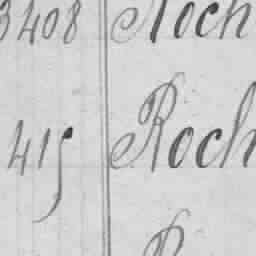 3408 Roch
415 Roch
R